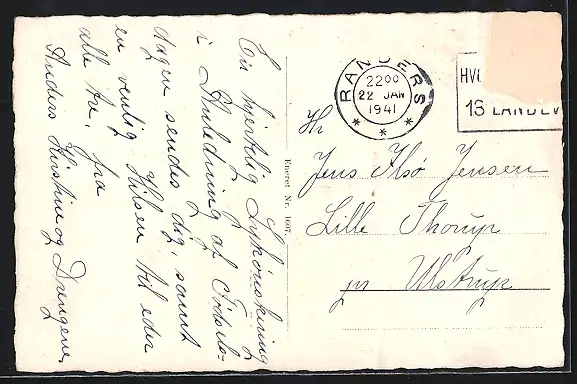 En hjertelig Lykønskning
i Anledning af Fødsels-
dagen sendes dig, samt
en venlig Hilsen til eder
alle tre, fra
Anders Kirstine og Drengene,
Eneret Nr. 1607.
RANDERS
2200
22 JAN
1941
HV
13 LANDEV
Hr
Jens Ilsø Jensen
Lille Thorup
pr Ulstrup